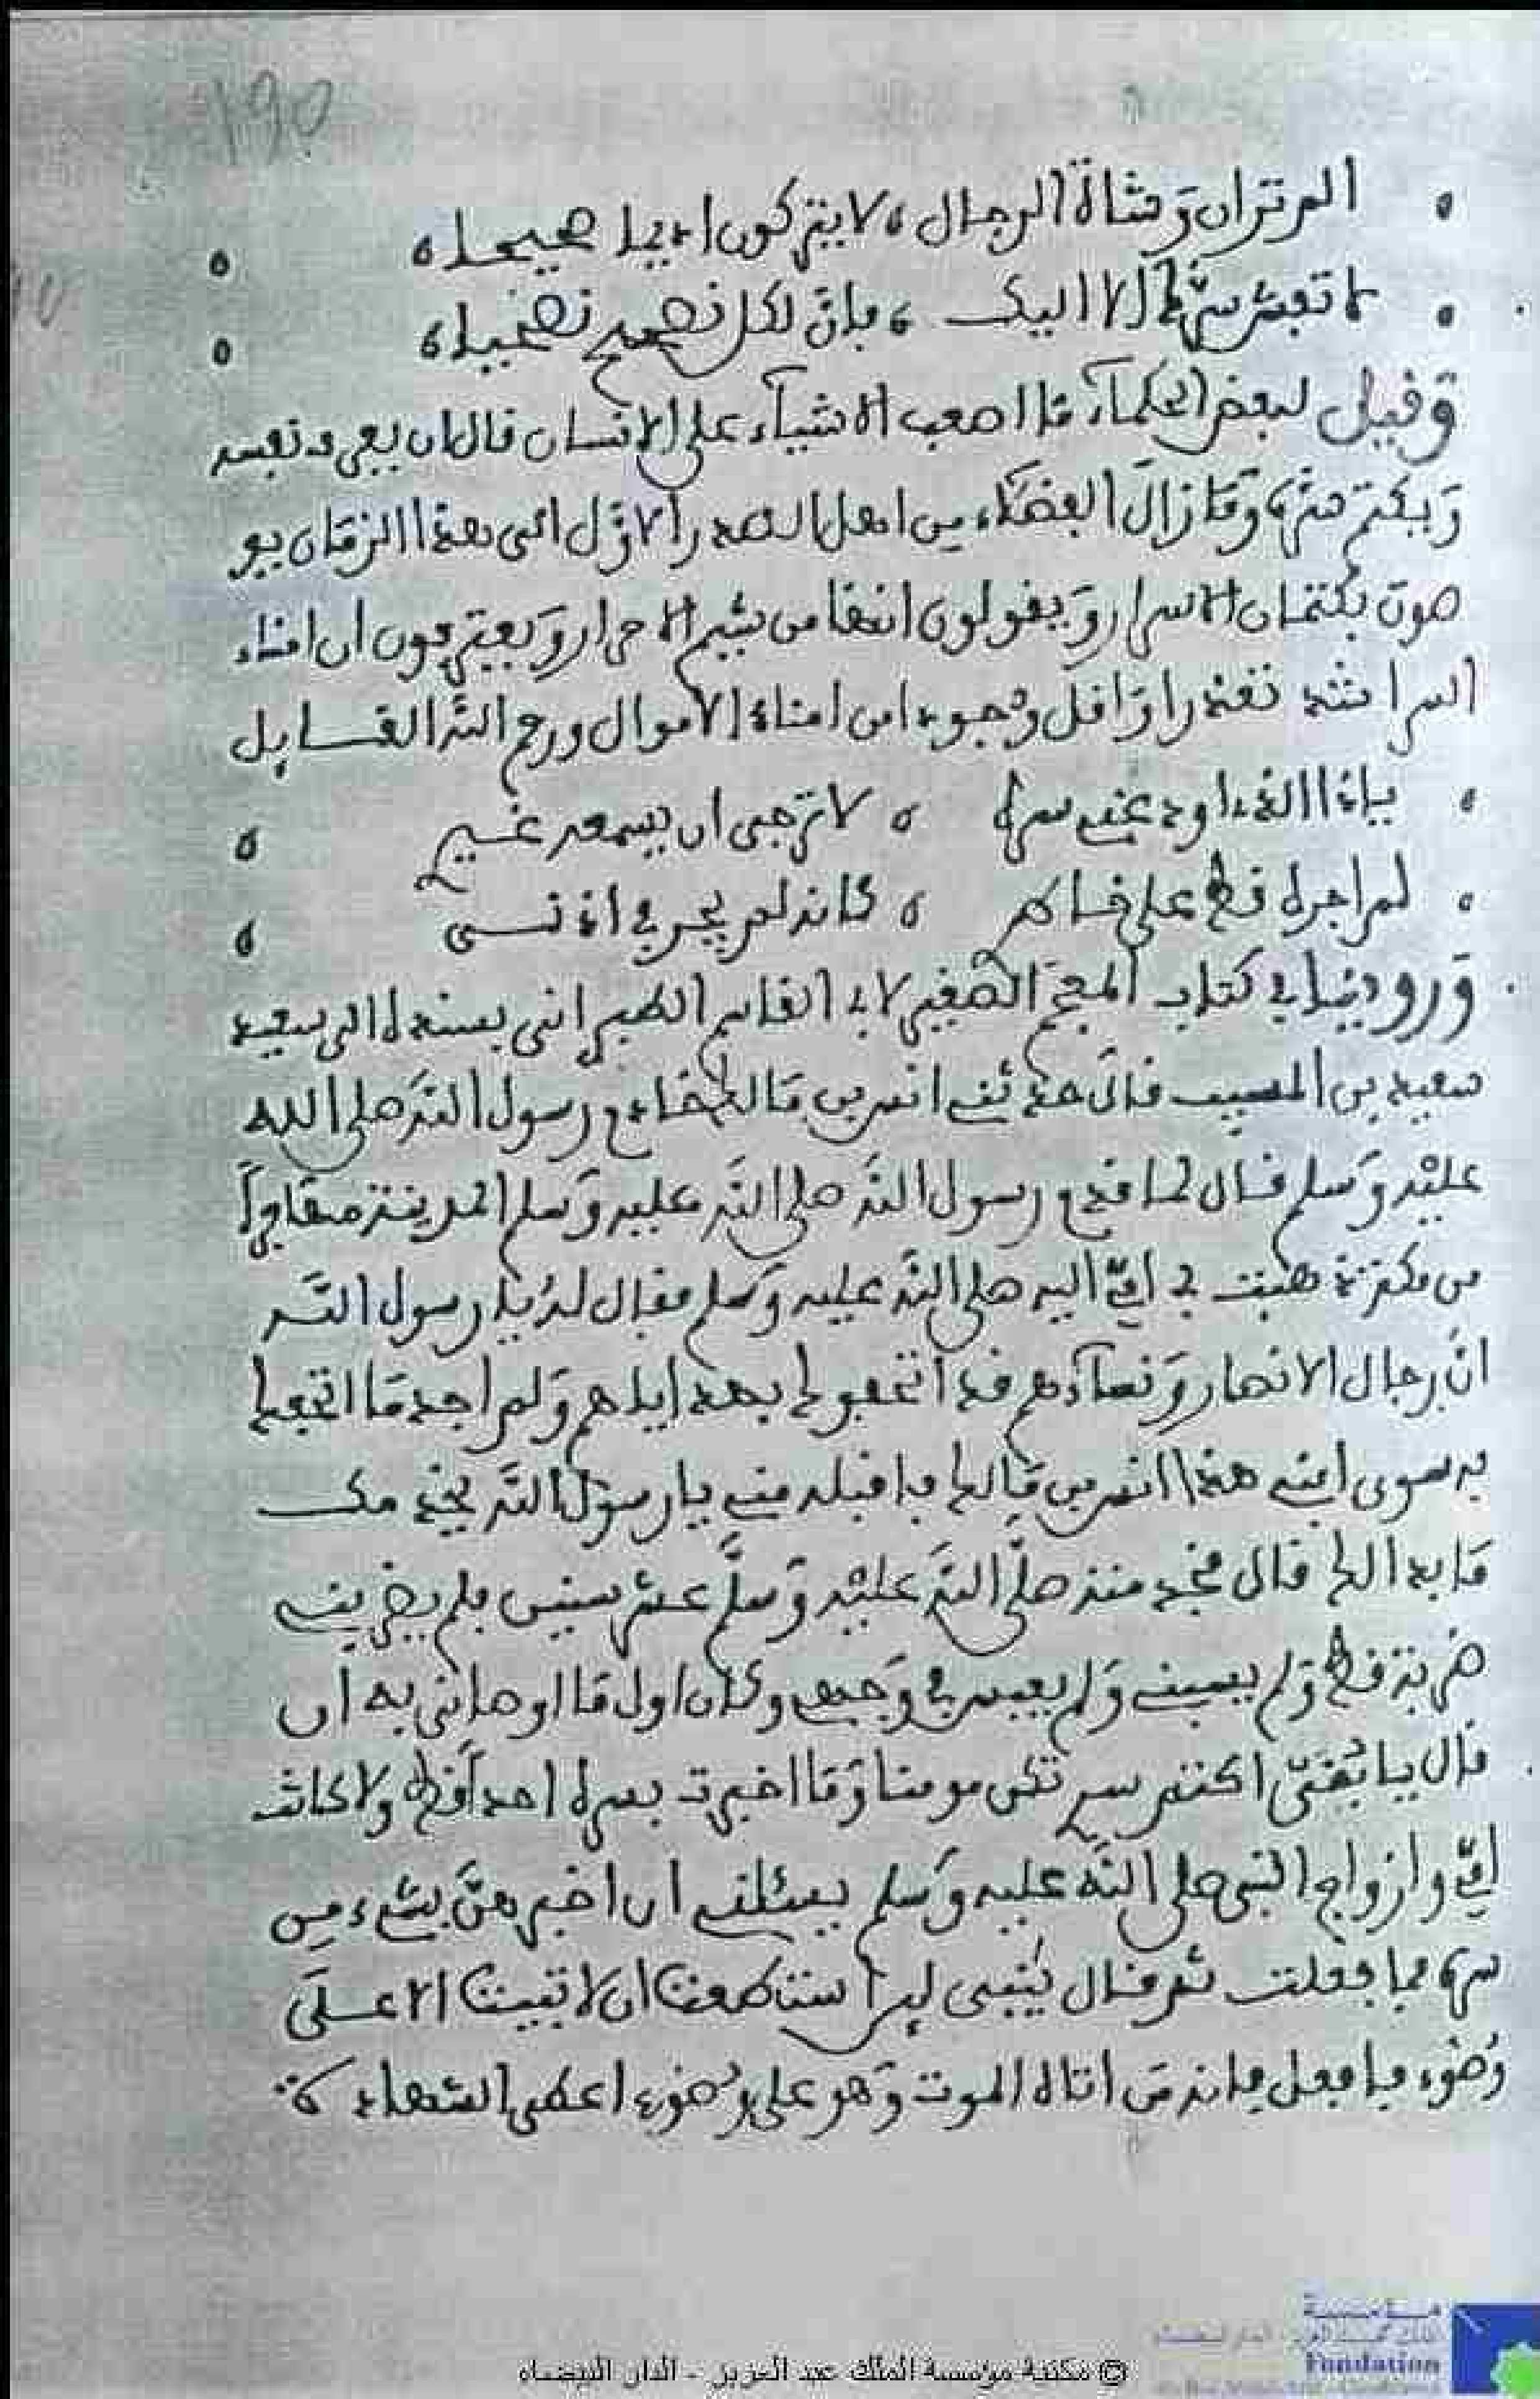 190
ألم تر ان وشاة الرجال ه لا يتركون اديما صحيحا ه
ه فلا تفش سرك الا اليك ه فإن لكل نصيح نصيحا ه
وقيل لبعض الحكماء ما اصعب الاشياء على الانسان قال ان يعرف نفسه
ويكتم سره وما زال الفضلاء من اهل الصدر الاول الى هذا الزمان يو
صون بكتمان الاسرار ويقولون انها من شيم الاحرار ويعترفون ان امناء
السر اشد تعذرا واقل وجودا من امناء الاموال ورحم الله القايل
ه ياذا الذي اودعني سره ه لا ترجى ان يسمعه غير ه
ه لم اجره قط على خاطر ه كانه لم يجر في اذنى ه
وروينا في كتاب المعجم الصغير لابي القاسم الطبراني بسنده الى سعيد
سعيد بن المسيب قال حدثني انس بن مالك خادم رسول الله صلى الله
عليه وسلم قال لما قدم رسول الله صلى الله عليه وسلم المدينة مهاجرا
من مكة ذهبت بي امي اليه صلى الله عليه وسلم فقال له يا رسول الله
ان رجال الانصار ونساءهم قد اتحفوك بهداياهم ولم اجد ما اتحفك
به سوى ابني هذا انس بن مالك فاقبله مني يا رسول الله يخدمك
ما بدا لك قال فخدمته صلى الله عليه وسلم عشر سنين فلم يضربني
ضربة قط ولم يسبني ولم يعبس في وجهي وكان اول ما اوصاني به ان
قال يا بني اكتم سري تكن مومنا وما اخبرت بسره احدا قط ولا كانت
امي وازواج النبي صلى الله عليه وسلم يسئلنني ان اخبرهن بشيء من
سره فما فعلت ثم قال يبنى ان استطعت ان لا تبيت الا على
وضوء فافعل فانه من اتاه الموت وهو على وضوء اعطي الشهادة
© مكتبة مؤسسة الملك عبد العزيز - الدار البيضاء
مؤسسة
Fondation